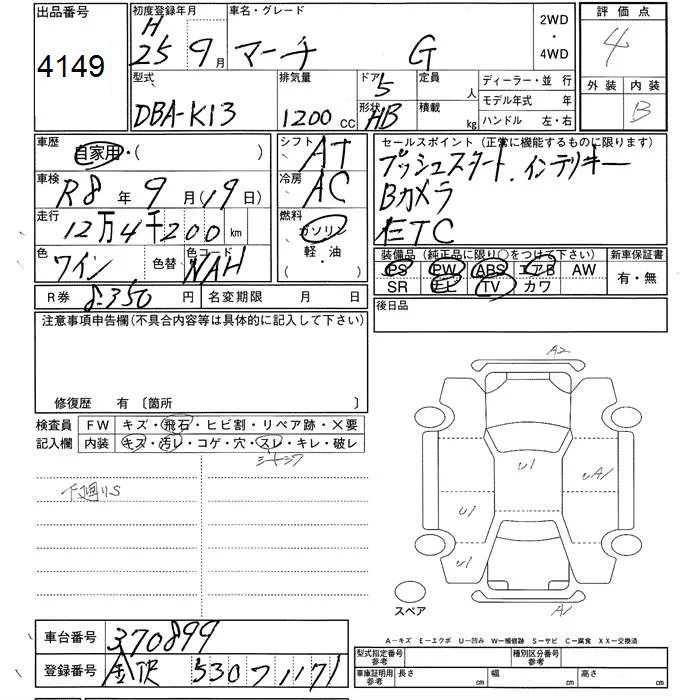 出品番号
4149
初度登録年月
H
25 9月
車名・グレード
マーチ G
2WD
・
4WD
評価点
4
外装 内装
B
型式
DBA-K13
排気量
1200 cc
ドア 5
形状 HB
定員 人
積載 kg
ディーラー・並行
モデル年式 年
ハンドル 左・右
車歴
自家用・( )
車検
R8年 9月(19日)
走行
12万4千200 km
色
ワイン
色替
色コード
NAH
シフト
AT
冷房
AC
燃料
ガソリン
軽・油
( )
セールスポイント(正常に機能するものに限ります)
プッシュスタート.インテリキー
Bカメラ
ETC
装備品(純正品に限り○をつけて下さい)
PS PW ABS エアB AW
SR ナビ TV カワ
新車保証書
有・無
R券 8.350 円
名変期限 月 日
後日品
注意事項申告欄(不具合内容等は具体的に記入して下さい)
修復歴 有 〔箇所 〕
検査員
記入欄
FW キズ・飛石・ヒビ割・リペア跡・×要
内装 キズ・汚レ・コゲ・穴・スレ・キレ・破レ
下廻りS
A2
U1
UA1
U1
U1
A1
スペア
A-キズ E-エクボ U-凹み W-補修跡 S-サビ C-腐食 XX-交換済
車台番号 370899
登録番号 金沢 530 7 1171
型式指定番号
参考
種別区分番号
参考
車庫証明用
参考
長さ cm
幅 cm
高さ cm